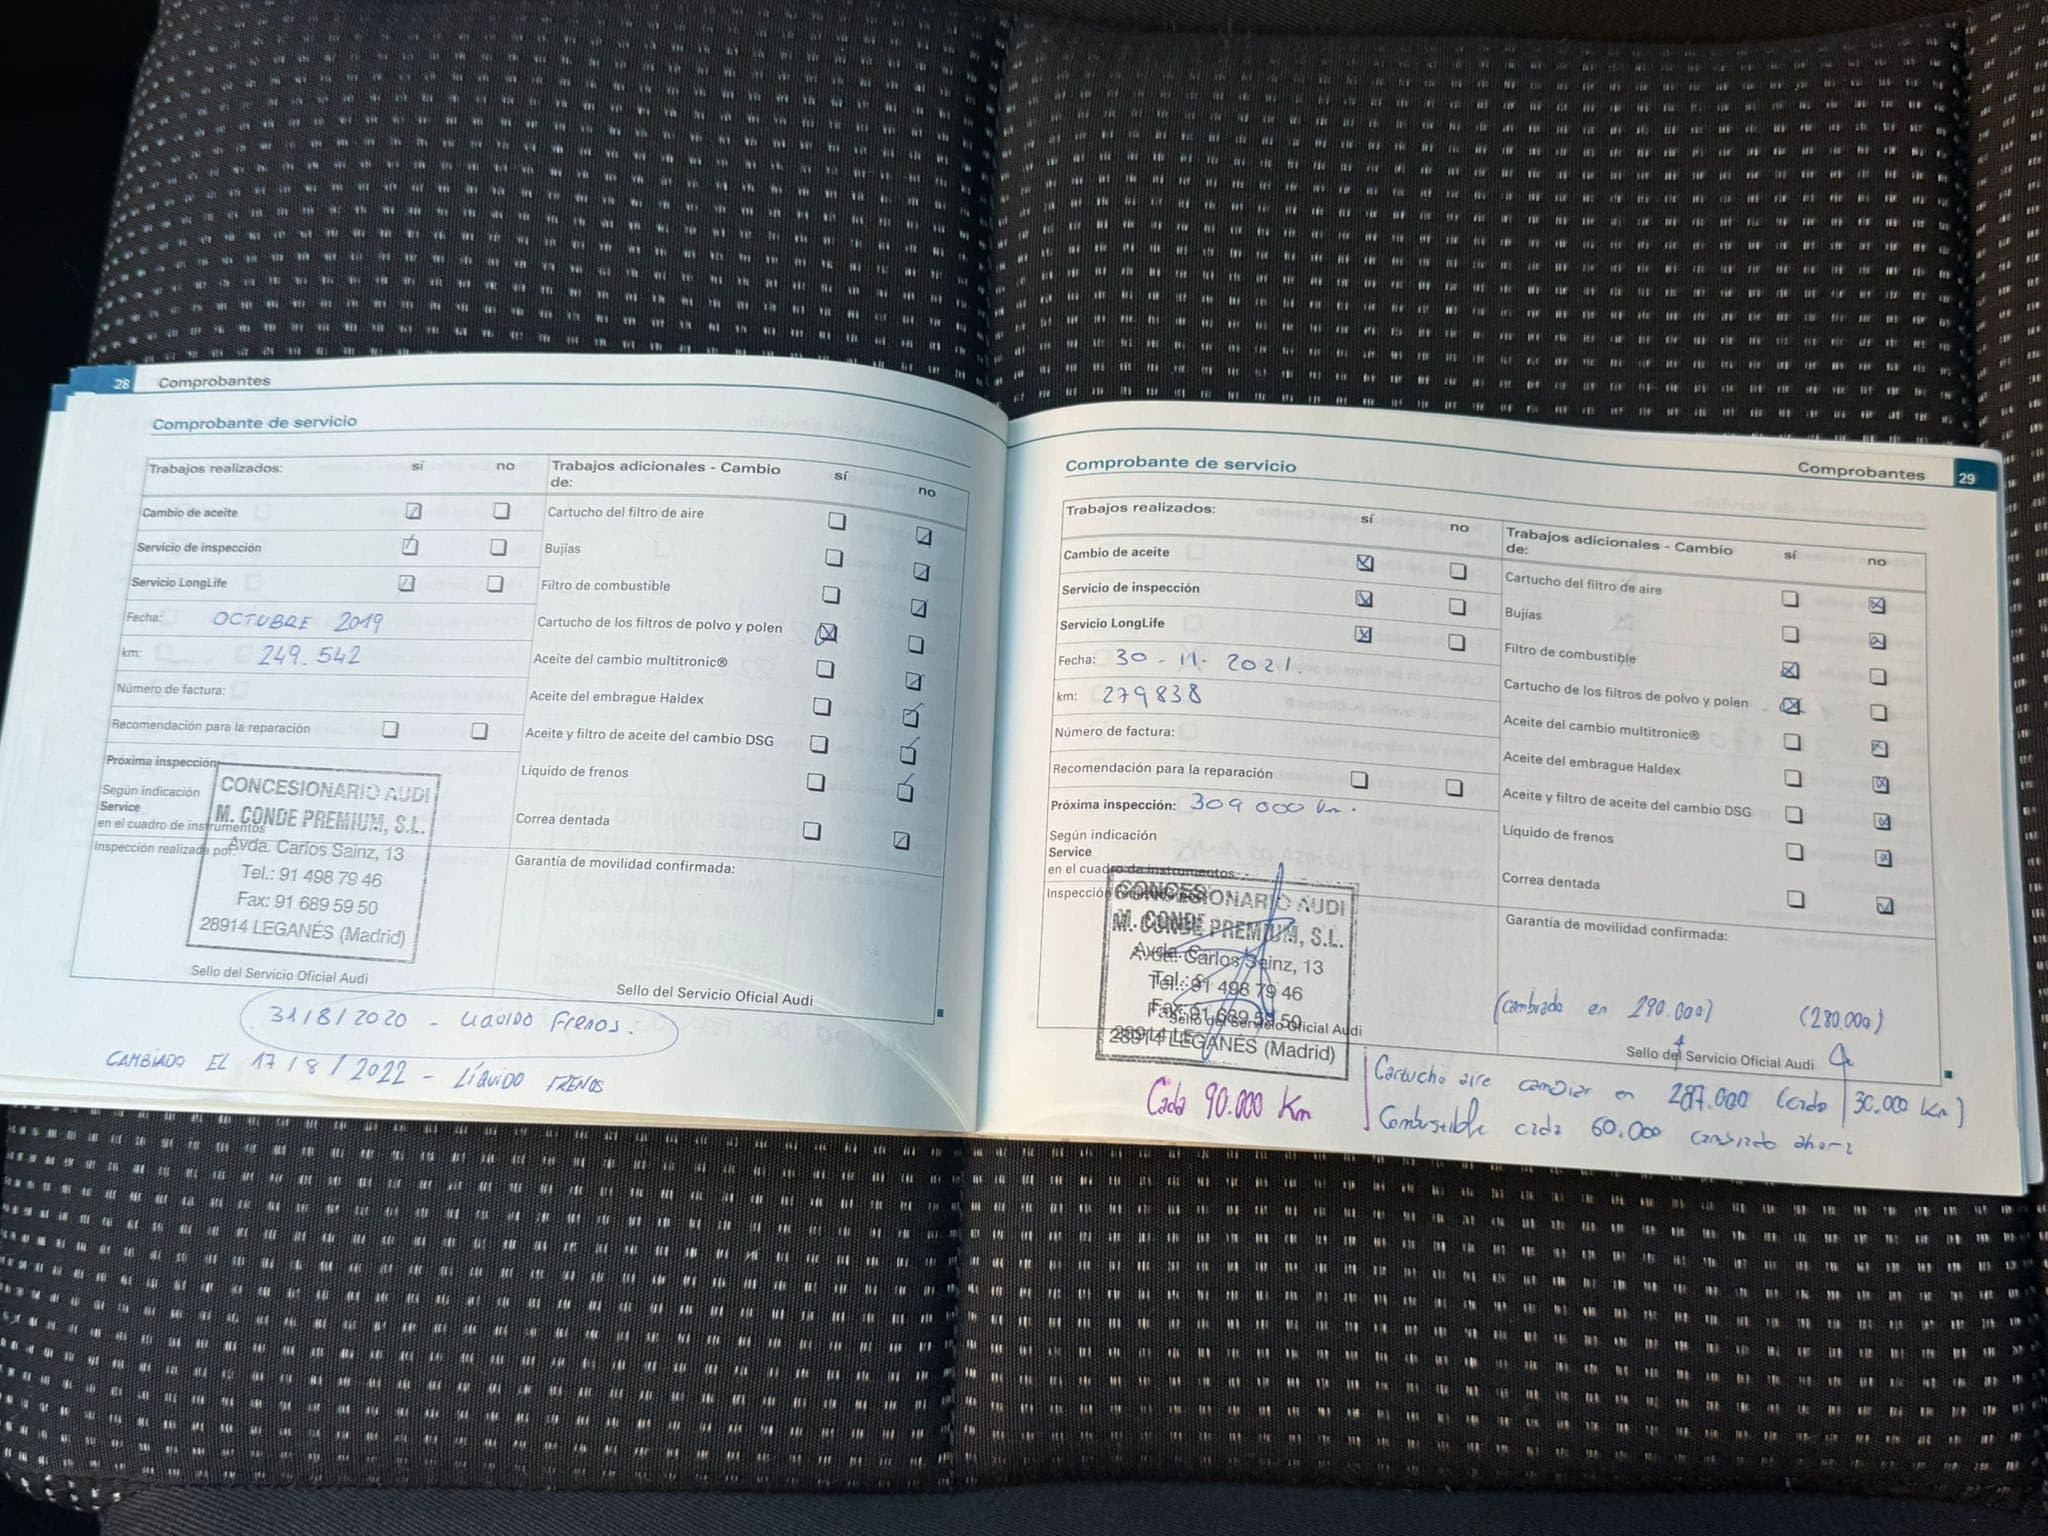 28 Comprobantes
Comprobante de servicio
Trabajos realizados: sí no
Cambio de aceite
Servicio de inspección
Servicio LongLife
Fecha: OCTUBRE 2019
km: 249.542
Número de factura:
Recomendación para la reparación
Próxima inspección:
Según indicación
Service
en el cuadro de instrumentos
Inspección realizada por:
CONCESIONARIO AUDI
M. CONDE PREMIUM, S.L.
Avda. Carlos Sainz, 13
Tel.: 91 498 79 46
Fax: 91 689 59 50
28914 LEGANÉS (Madrid)
Sello del Servicio Oficial Audi
Trabajos adicionales - Cambio
de: sí no
Cartucho del filtro de aire
Bujías
Filtro de combustible
Cartucho de los filtros de polvo y polen
Aceite del cambio multitronic®
Aceite del embrague Haldex
Aceite y filtro de aceite del cambio DSG
Líquido de frenos
Correa dentada
Garantía de movilidad confirmada:
Sello del Servicio Oficial Audi
31/8/2020 - LIQUIDO FRENOS.
CAMBIADO EL 17/8/2022 - LÍQUIDO FRENOS
Comprobantes 29
Comprobante de servicio
Trabajos realizados: sí no
Cambio de aceite
Servicio de inspección
Servicio LongLife
Fecha: 30-11-2021.
km: 279838
Número de factura:
Recomendación para la reparación
Próxima inspección: 309000 km.
Según indicación
Service
en el cuadro de instrumentos
Inspección
CONCESIONARIO AUDI
M. CONDE PREMIUM, S.L.
Avda. Carlos Sainz, 13
Tel.: 91 498 79 46
Fax: 91 689 59 50
28914 LEGANÉS (Madrid)
Sello del Servicio Oficial Audi
Trabajos adicionales - Cambio
de: sí no
Cartucho del filtro de aire
Bujías
Filtro de combustible
Cartucho de los filtros de polvo y polen
Aceite del cambio multitronic®
Aceite del embrague Haldex
Aceite y filtro de aceite del cambio DSG
Líquido de frenos
Correa dentada
Garantía de movilidad confirmada:
(cambiado en 290.000) (280.000)
Sello del Servicio Oficial Audi
Cada 90.000 Km
Cartucho aire cambiar en 287.000 (cada 30.000 Km)
Combustible cada 60.000 cambiado ahora